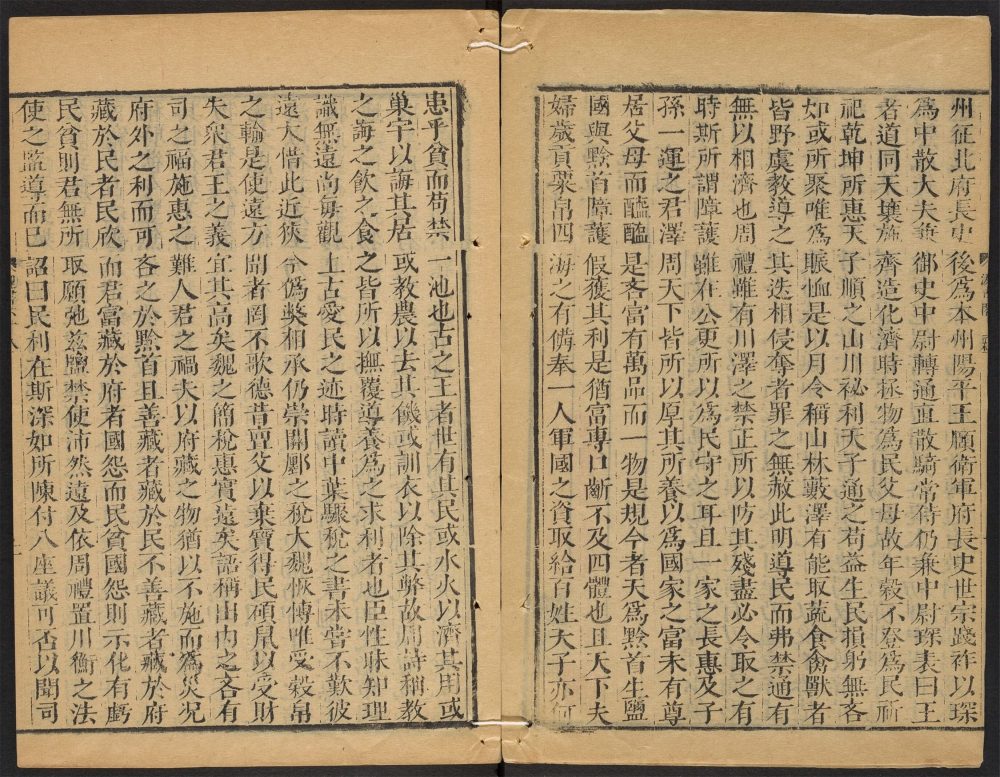 州征北府長史後爲本州陽平王頤衛軍府長史世宗踐祚以琛
爲中散大夫兼御史中尉轉通直散騎常侍仍兼中尉琛表曰王
者道同天壤施齊造化濟時拯物爲民父母故年穀不登爲民祈
祀乾坤所惠天子順之山川祕利天子通之苟益生民損躬無吝
如或所聚唯爲賑恤是以月令稱山林藪澤有能取蔬食禽獸者
皆野虞教導之其迭相侵奪者罪之無赦此明導民而弗禁通有
無以相濟也周禮雖有川澤之禁正所以防其殘盡必令取之有
時斯所謂障護雖在公更所以爲民守之耳且一家之長惠及子
孫一運之君澤周天下皆所以厚其所養以爲國家之富未有尊
居父母而醯醢是吝富有萬品而一物是規今者天爲黔首生鹽
國與黔首障護假獲其利是猶富專口齗不及四體也且天下夫
婦歲貢粟帛四海之有備奉一人軍國之資取給百姓天子亦何
患乎貧而苟禁一池也古之王者世有其民或水火以濟其用或
巢宇以誨其居或教農以去其饑或訓衣以除其弊故周詩稱教
之誨之飲之食之皆所以撫覆導養爲之求利者也臣性昧知理
識無遠尚每觀上古愛民之迹時讀中葉驟稅之書未嘗不歎彼
遠大惜此近狹今僞弊相承仍崇關鄽之稅大魏恢博唯受穀帛
之輸是使遠方聞者罔不歌德昔亶父以棄寶得民碩鼠以受財
失衆君王之義宜其高矣魏之簡稅惠實遠矣語稱出内之吝有
司之福施惠之難人君之禍夫以府藏之物猶以不施而爲災況
府外之利而可吝之於黔首且善藏者藏於民不善藏者藏於府
藏於民者民欣而君富藏於府者國怨而民貧國怨則示化有虧
民貧則君無所取願弛兹鹽禁使沛然遠及依周禮置川衡之法
使之監導而已詔曰民利在斯深如所陳付八座議可否以聞司